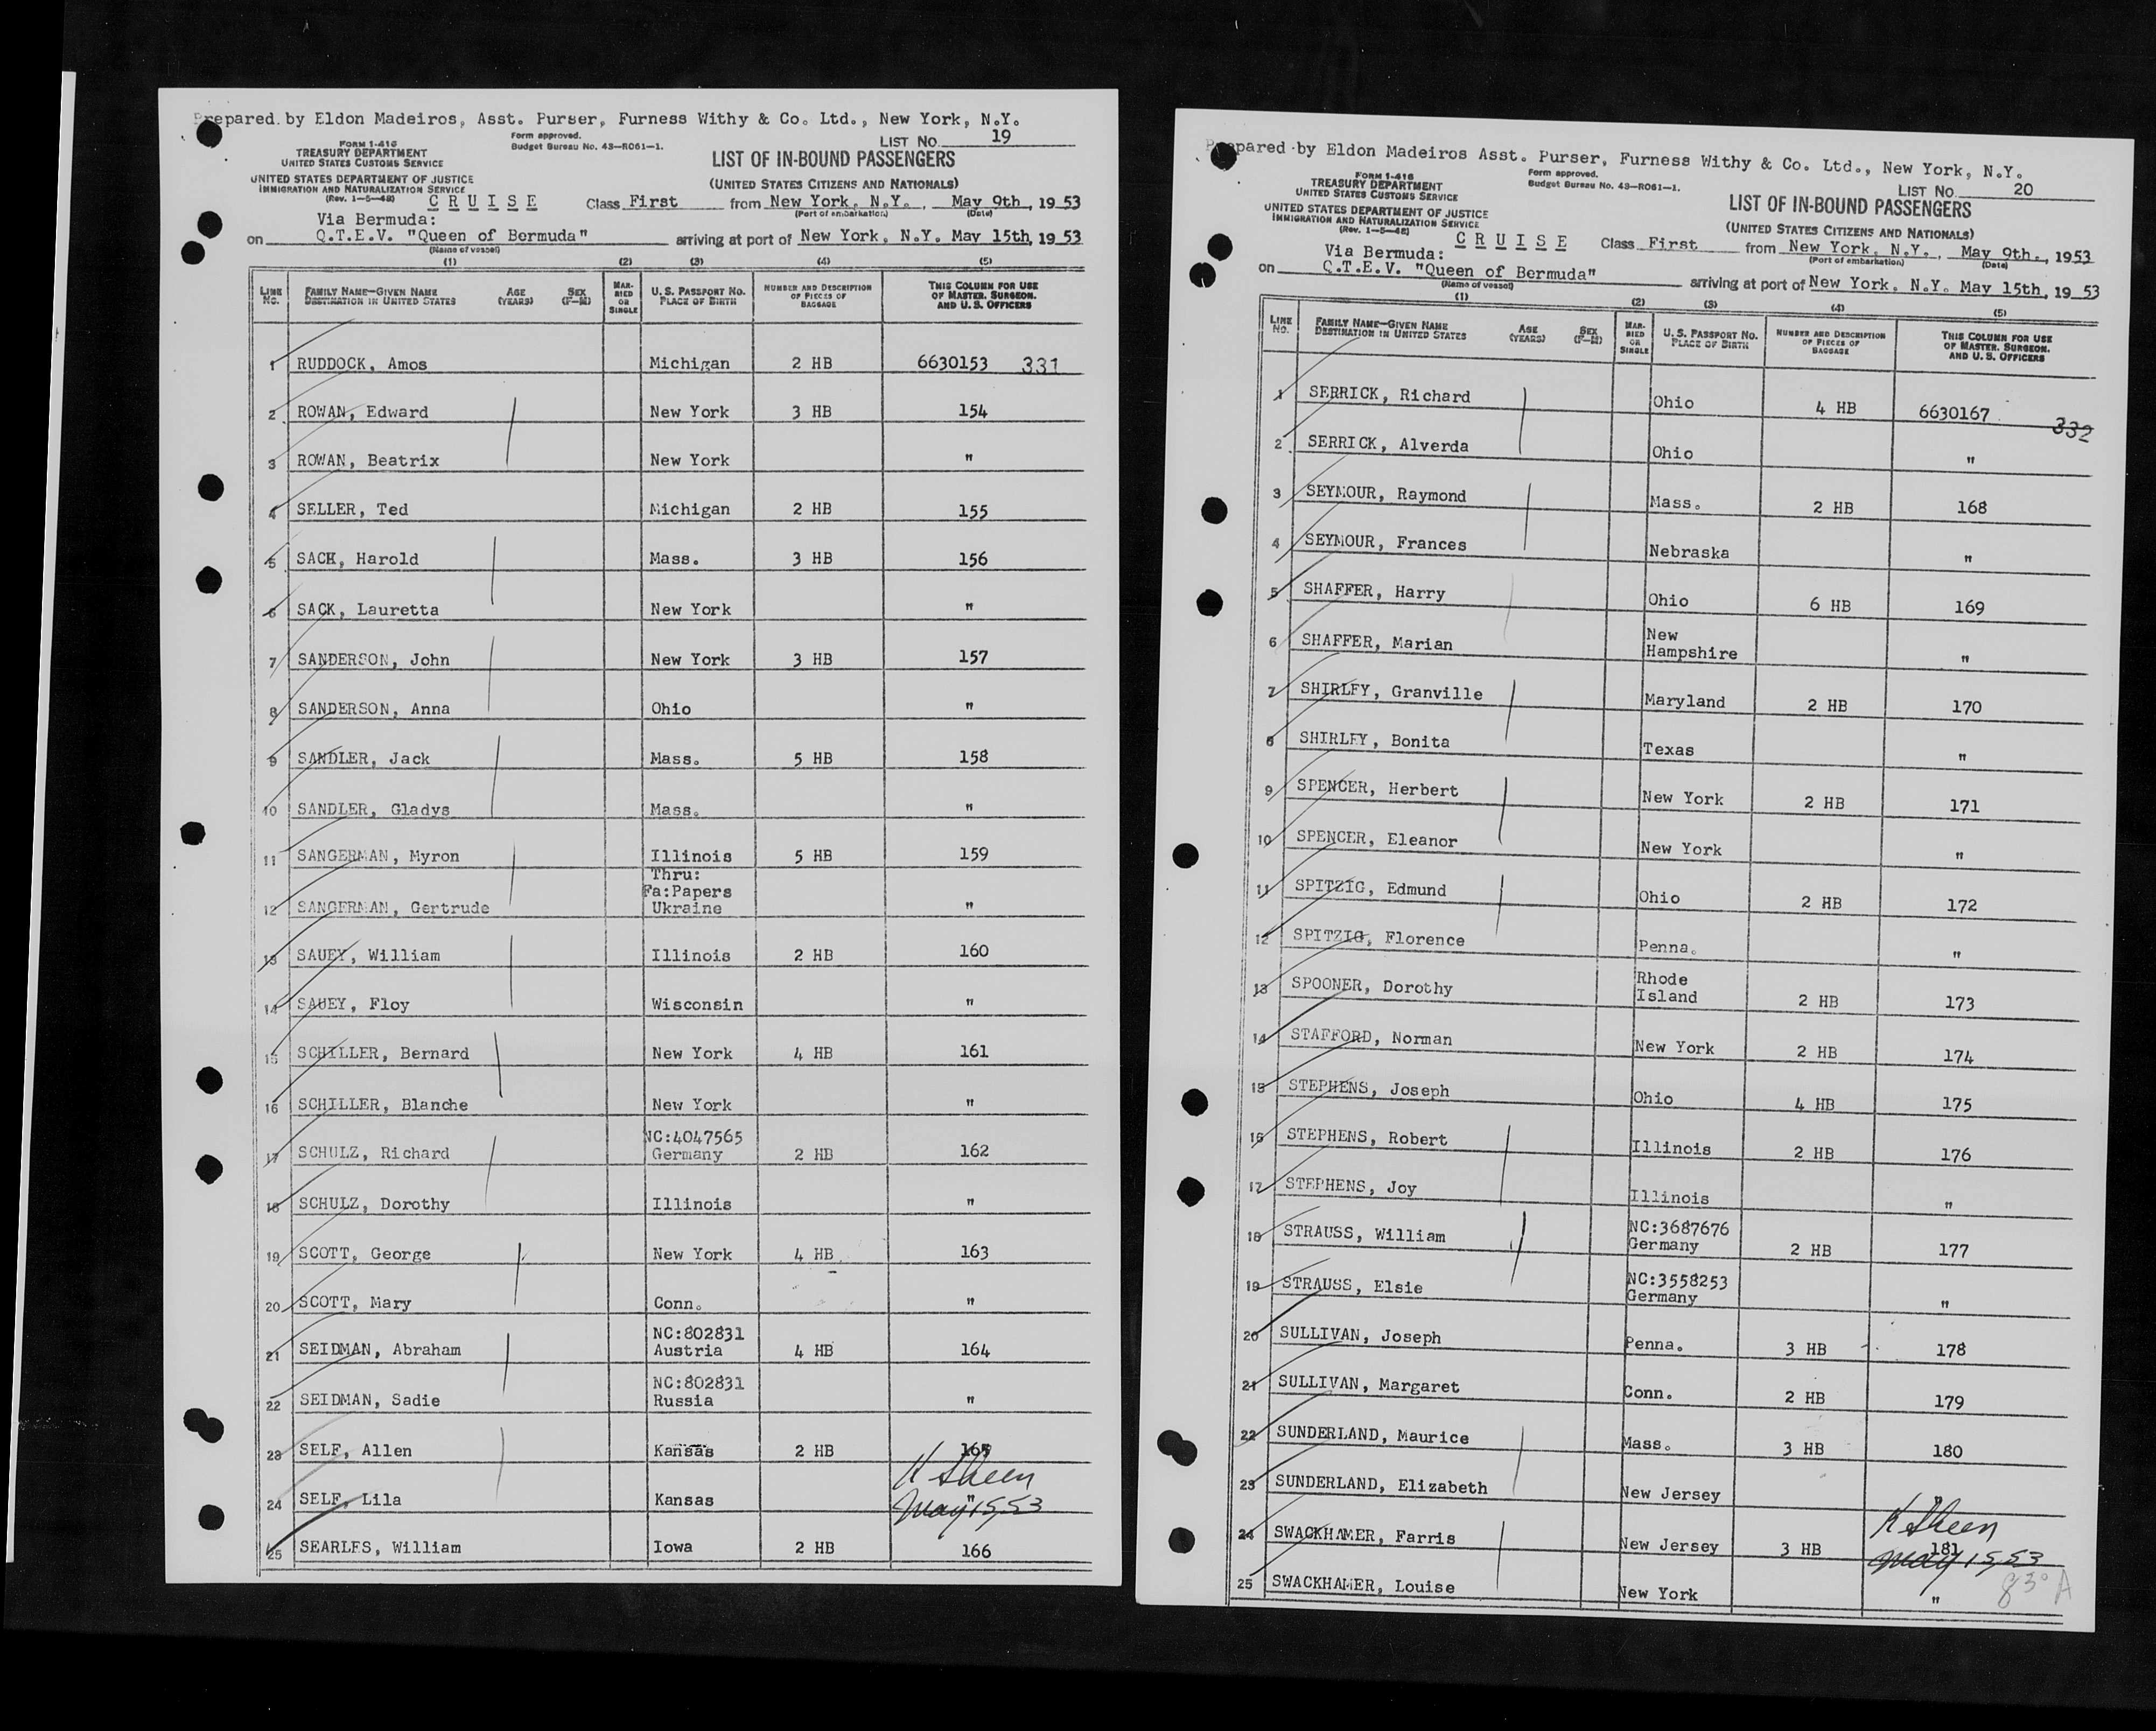 Prepared by Eldon Madeiros, Asst. Purser, Furness Withy & Co. Ltd., New York, N.Y.
LIST NO. 19
FORM I-416
TREASURY DEPARTMENT
UNITED STATES CUSTOMS SERVICE
Form approved.
Budget Bureau No. 43-R061-1.
LIST OF IN-BOUND PASSENGERS
UNITED STATES DEPARTMENT OF JUSTICE
IMMIGRATION AND NATURALIZATION SERVICE
(Rev. 1-5-48)
(UNITED STATES CITIZENS AND NATIONALS)
CRUISE Class First from New York, N.Y., May 9th, 1953
(Port of embarkation) (Date)
Via Bermuda:
on Q.T.E.V. "Queen of Bermuda" arriving at port of New York, N.Y. May 15th, 1953
(Name of vessel)
(1) (2) (3) (4) (5)
LINE NO. FAMILY NAME—GIVEN NAME DESTINATION IN UNITED STATES AGE (YEARS) SEX (F-M) MARRIED OR SINGLE U.S. PASSPORT NO. PLACE OF BIRTH NUMBER AND DESCRIPTION OF PIECES OF BAGGAGE THIS COLUMN FOR USE OF MASTER, SURGEON, AND U.S. OFFICERS
1 RUDDOCK, Amos Michigan 2 HB 6630153 331
2 ROWAN, Edward New York 3 HB 154
3 ROWAN, Beatrix New York "
4 SELLER, Ted Michigan 2 HB 155
5 SACK, Harold Mass. 3 HB 156
6 SACK, Lauretta New York "
7 SANDERSON, John New York 3 HB 157
8 SANDERSON, Anna Ohio "
9 SANDLER, Jack Mass. 5 HB 158
10 SANDLER, Gladys Mass. "
11 SANGERMAN, Myron Illinois 5 HB 159
Thru:
Fa:Papers
12 SANGERMAN, Gertrude Ukraine "
13 SAUEY, William Illinois 2 HB 160
14 SAUEY, Floy Wisconsin "
15 SCHILLER, Bernard New York 4 HB 161
16 SCHILLER, Blanche New York "
NC:4047565
17 SCHULZ, Richard Germany 2 HB 162
18 SCHULZ, Dorothy Illinois "
19 SCOTT, George New York 4 HB 163
20 SCOTT, Mary Conn. "
NC:802831
21 SEIDMAN, Abraham Austria 4 HB 164
NC:802831
22 SEIDMAN, Sadie Russia "
23 SELF, Allen Kansas 2 HB 165
K Sheen
24 SELF, Lila Kansas "
May 15, 53
25 SEARLES, William Iowa 2 HB 166
Prepared by Eldon Madeiros Asst. Purser, Furness Withy & Co. Ltd., New York, N.Y.
LIST NO. 20
FORM I-416
TREASURY DEPARTMENT
UNITED STATES CUSTOMS SERVICE
Form approved.
Budget Bureau No. 43-R061-1.
LIST OF IN-BOUND PASSENGERS
UNITED STATES DEPARTMENT OF JUSTICE
IMMIGRATION AND NATURALIZATION SERVICE
(Rev. 1-5-48)
(UNITED STATES CITIZENS AND NATIONALS)
CRUISE Class First from New York, N.Y., May 9th., 1953
(Port of embarkation) (Date)
Via Bermuda:
on Q.T.E.V. "Queen of Bermuda" arriving at port of New York, N.Y. May 15th, 1953
(Name of vessel)
(1) (2) (3) (4) (5)
LINE NO. FAMILY NAME—GIVEN NAME DESTINATION IN UNITED STATES AGE (YEARS) SEX (F-M) MARRIED OR SINGLE U.S. PASSPORT NO. PLACE OF BIRTH NUMBER AND DESCRIPTION OF PIECES OF BAGGAGE THIS COLUMN FOR USE OF MASTER, SURGEON, AND U.S. OFFICERS
1 SERRICK, Richard Ohio 4 HB 6630167 332
2 SERRICK, Alverda Ohio "
3 SEYMOUR, Raymond Mass. 2 HB 168
4 SEYMOUR, Frances Nebraska "
5 SHAFFER, Harry Ohio 6 HB 169
6 SHAFFER, Marian New Hampshire "
7 SHIRLEY, Granville Maryland 2 HB 170
8 SHIRLEY, Bonita Texas "
9 SPENCER, Herbert New York 2 HB 171
10 SPENCER, Eleanor New York "
11 SPITZIG, Edmund Ohio 2 HB 172
12 SPITZIG, Florence Penna. "
13 SPOONER, Dorothy Rhode Island 2 HB 173
14 STAFFORD, Norman New York 2 HB 174
15 STEPHENS, Joseph Ohio 4 HB 175
16 STEPHENS, Robert Illinois 2 HB 176
17 STEPHENS, Joy Illinois "
NC:3687676
18 STRAUSS, William Germany 2 HB 177
NC:3558253
19 STRAUSS, Elsie Germany "
20 SULLIVAN, Joseph Penna. 3 HB 178
21 SULLIVAN, Margaret Conn. 2 HB 179
22 SUNDERLAND, Maurice Mass. 3 HB 180
23 SUNDERLAND, Elizabeth New Jersey "
K Sheen
24 SWACKHAMER, Farris New Jersey 3 HB 181
May 15, 53
83° A
25 SWACKHAMER, Louise New York "